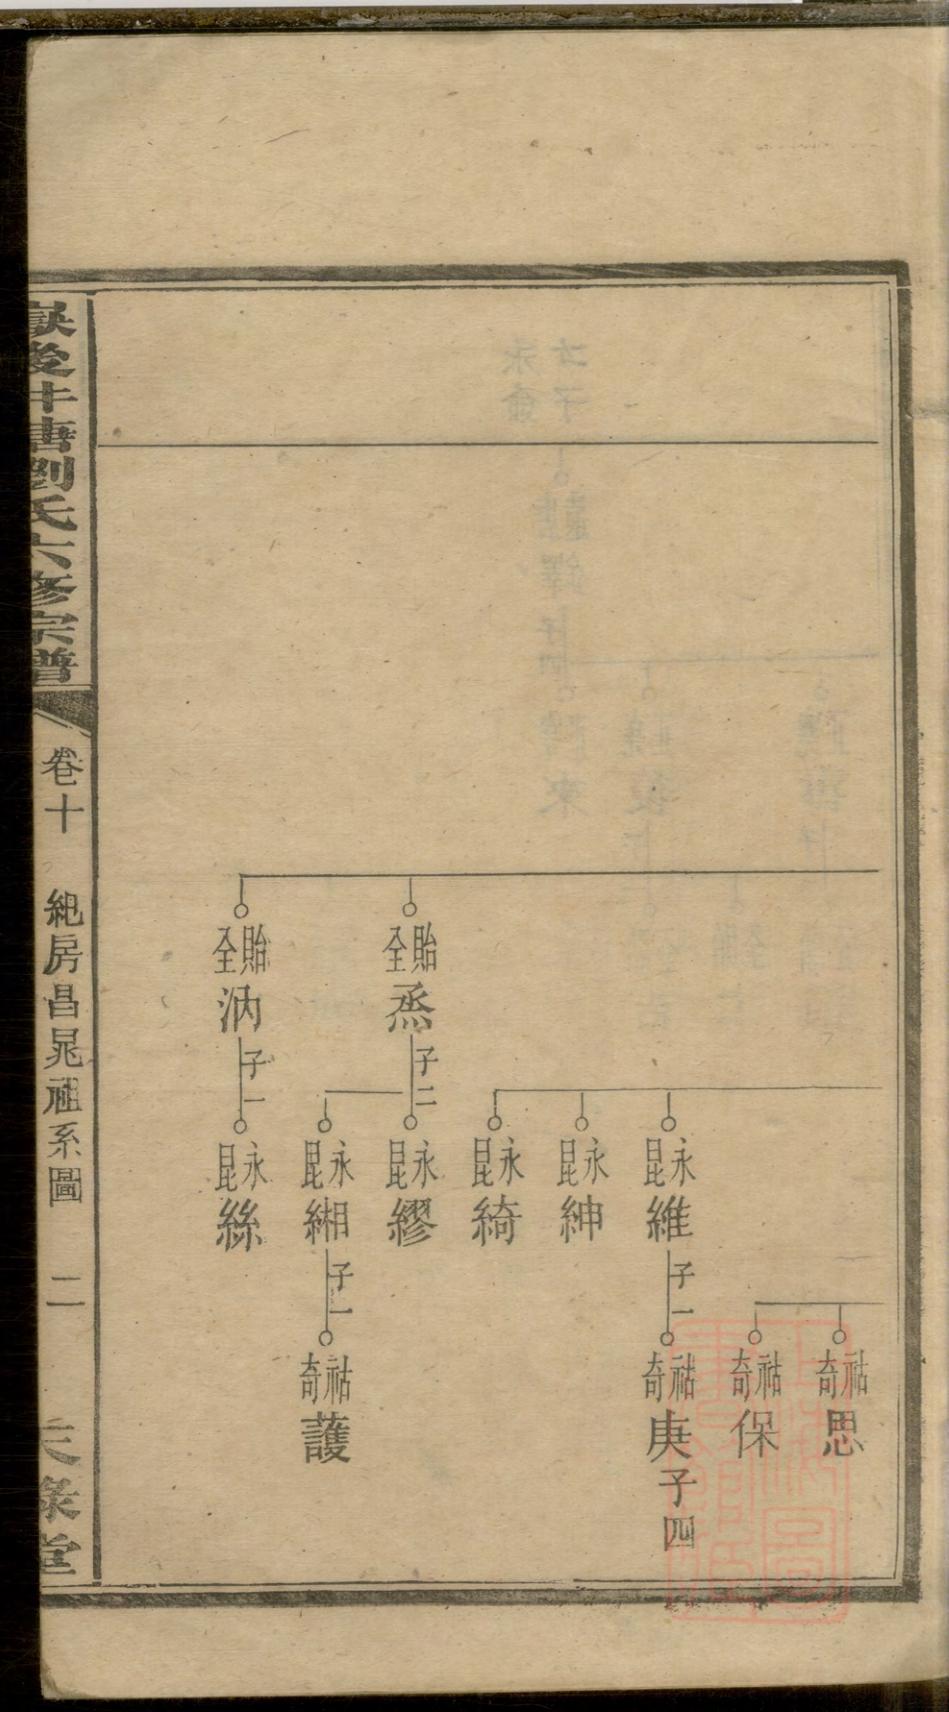 祜奇
思
祜奇
保
永昆
維
子一
祜奇
庚
子四
永昆
紳
永昆
綺
貽全
烝
子二
永昆
繆
永昆
緗
子一
祜奇
護
貽全
汭
子一
永昆
絲
唐劉氏六修宗譜
卷十
紀房昌晁祖系圖
二
天祿堂